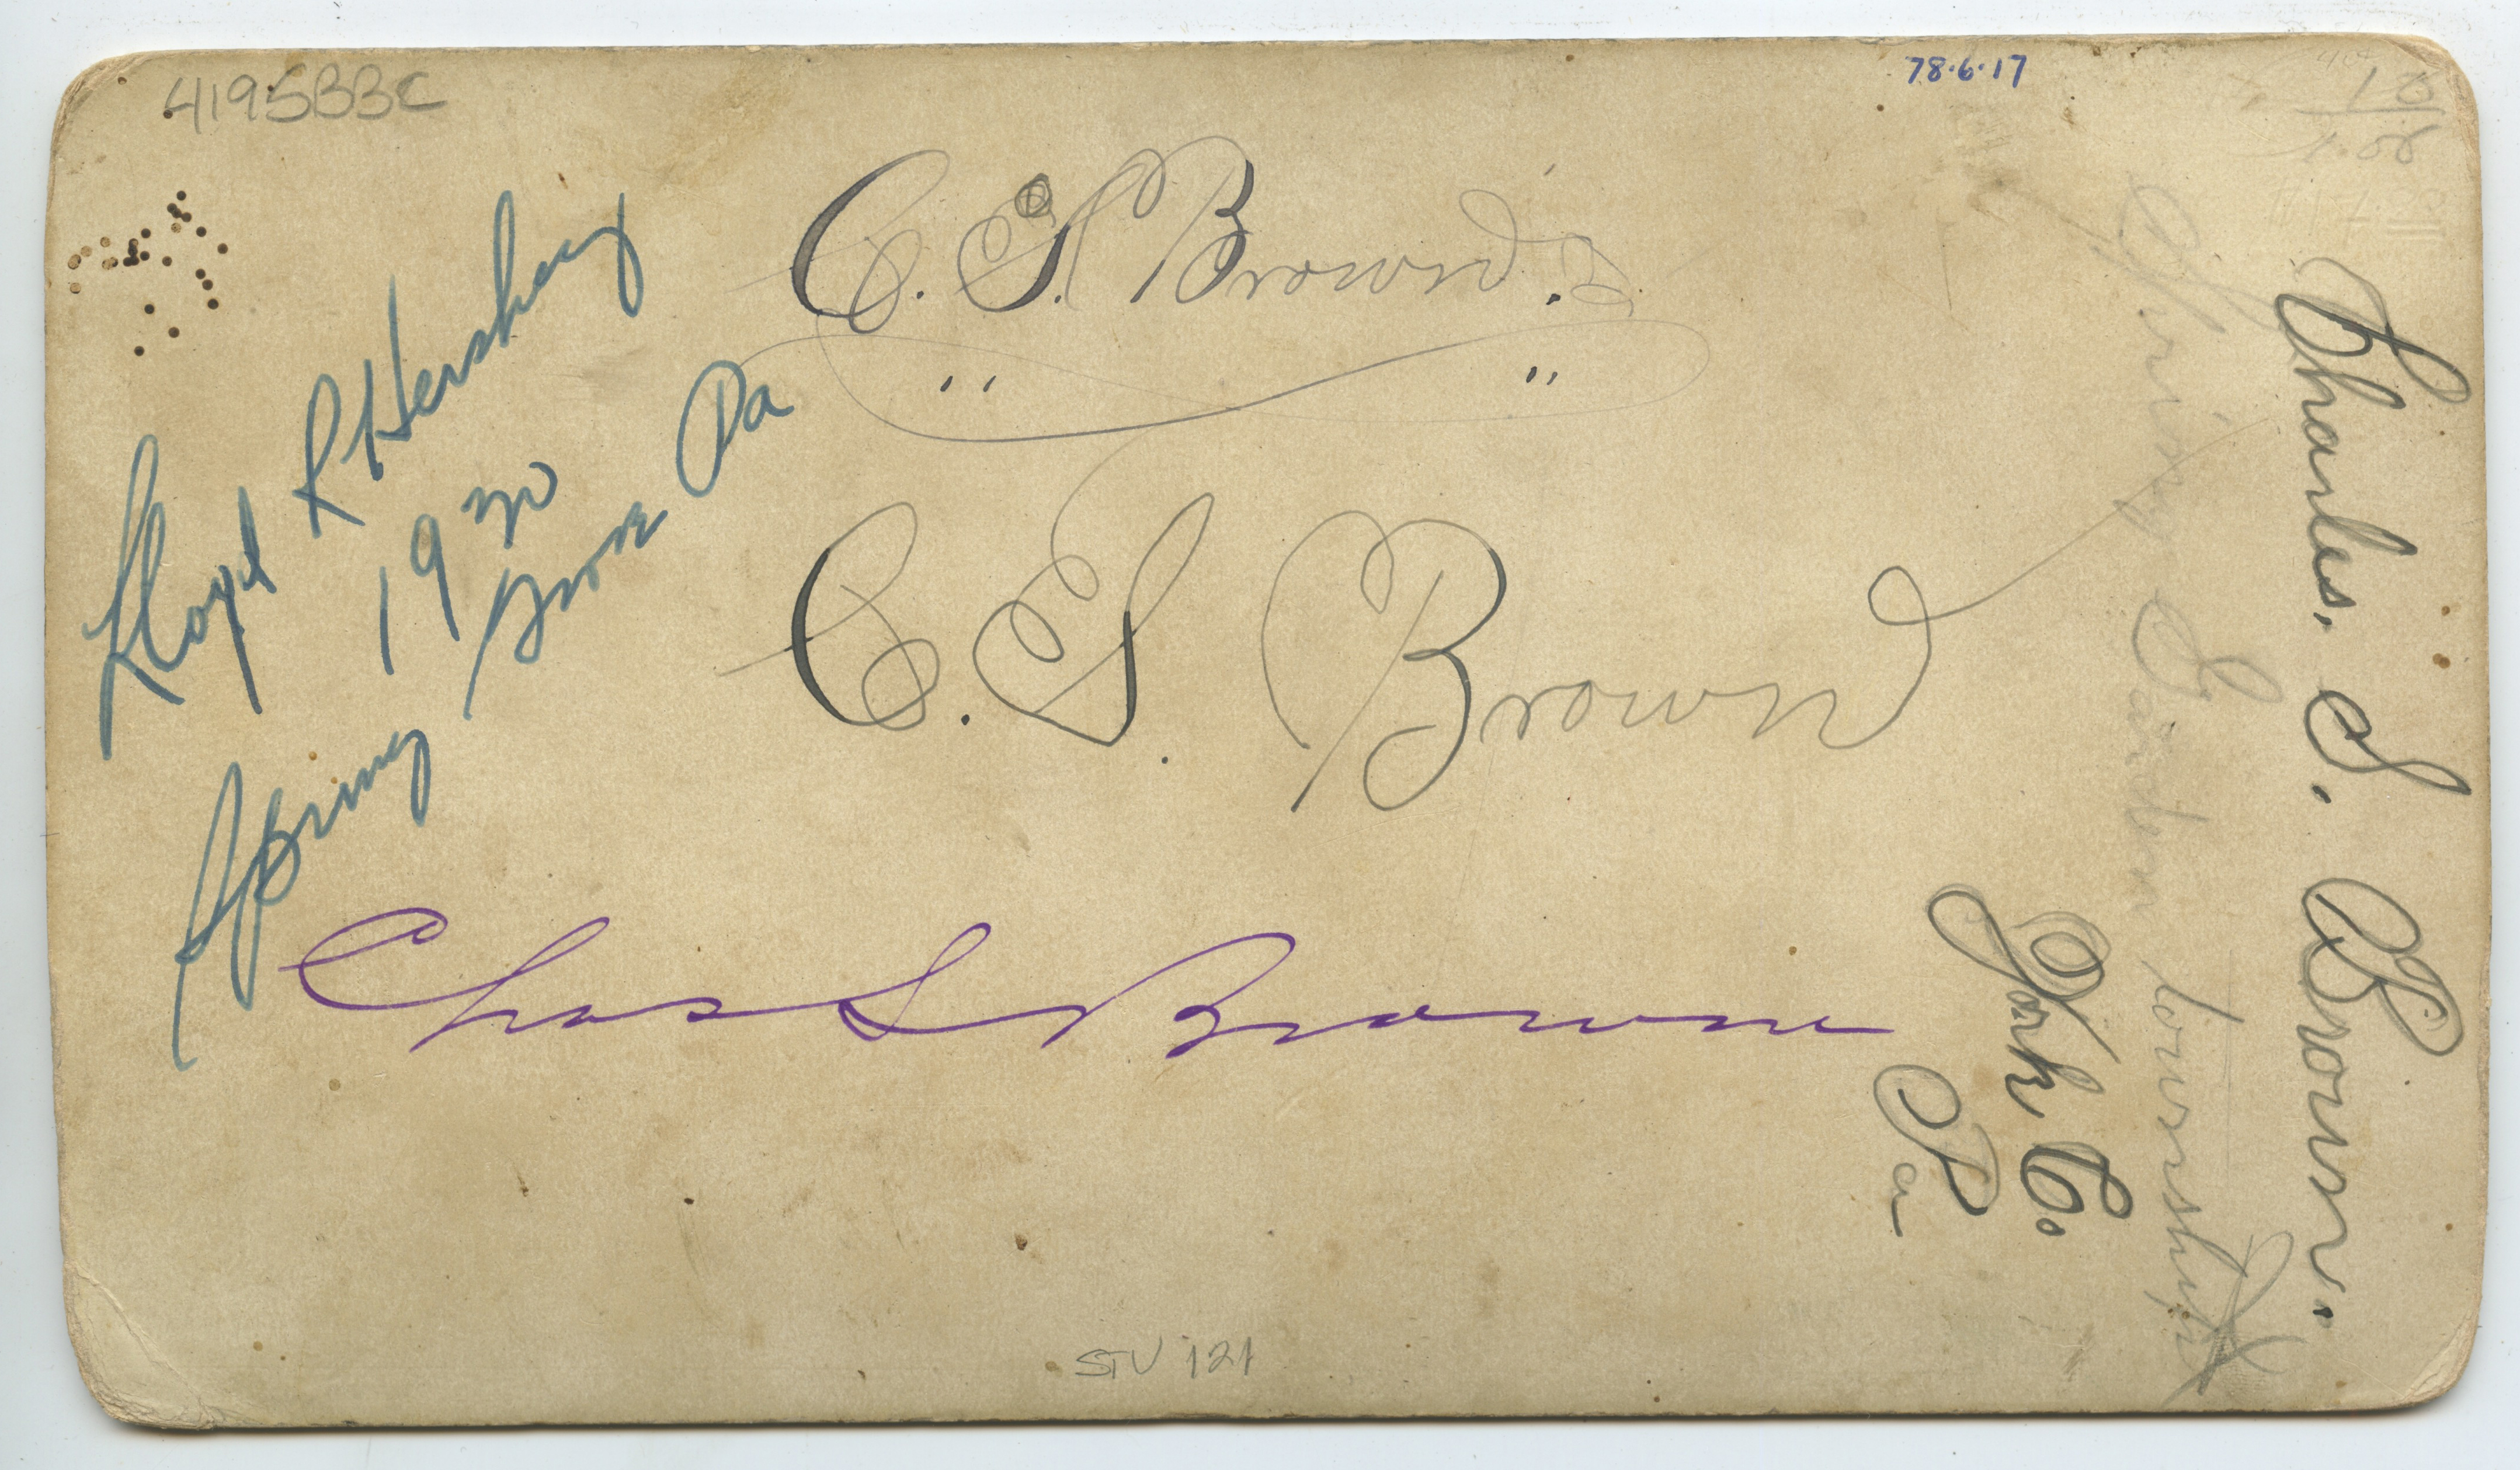 4195BBC
78.6.17
10
1.00
C. S. Brown.
" "
Lloyd R Hershey
1920
Spring Grove Pa
C. S. Brown
Chas S Brown
Charles. S. Brown.
Spring Garden township
York Co.
Pa
STU 121